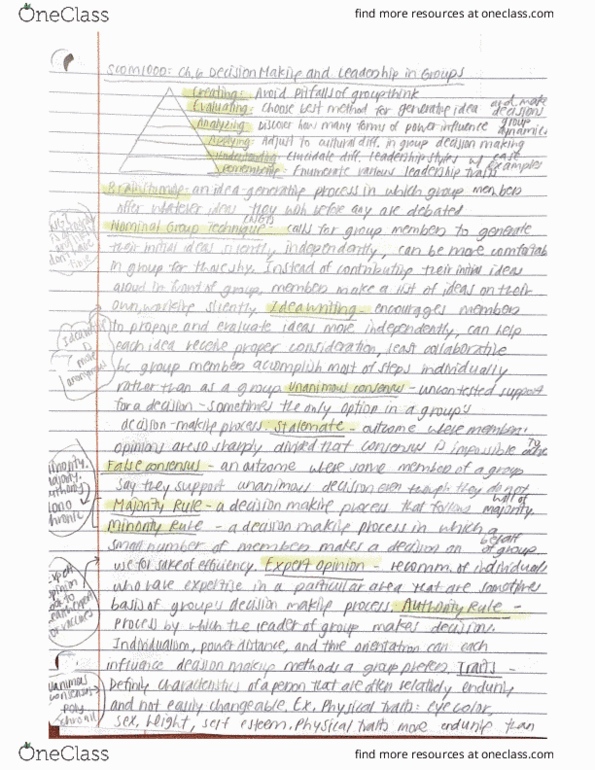 OneClass
find more resources at oneclass.com
SCOM1000: Ch.6 Decision Making and Leadership in Groups
Creating: Avoid Pitfalls of groupthink
Evaluating: Choose best method for generative idea and make decisions
Analyzing: Discover how many forms of power influence group dynamics
Applying: Adjust to cultural diff. in group decision making
Understanding: Elucidate diff. leadership styles w/ case examples
Remembering: Enumerate various leadership traits
Brainstorming - an idea-generative process in which group members
offer whatever ideas they wish before any are debated
Nominal Group Technique: (lists) calls for group members to generate
their initial ideas silently, independently, can be more comfortable
in group for those shy. Instead of contributing their initial ideas
aloud in front of group, members make a list of ideas on their
own, working silently Ideawriting - encourages members
to propose and evaluate ideas more independently, can help
each idea receive proper consideration, least collaborative
bc group members acomplish most of steps individually
rather than as a group. Unanimous consensus - uncontested support
for a decision - sometimes the only option in a group's
decision-making process Stalemate - outcome where members'
opinions are so sharply divided that consensus is impossible to achieve
False consensus - an outcome where some member of a group
say they support unanimous decision even though they do not
Majority Rule - a decision making process that follows will of majority
Minority Rule - a decision making process in which a
small number of members makes a decision on behalf of group
use for sake of efficiency. Expert opinion - recomm. of individuals
who have expertise in a particular area that are sometimes
basis of group's decision making process. Authority Rule -
process by which the leader of group makes decision.
Individualism, power distance, and time orientation can each
influence decision makeup methods a group prefers Traits -
Definitg characteristics of a person that are often relatively enduring
and not easily changeable. Ex. Physical traits: eye color,
sex, height, self esteem. Physical traits more enduring than
Ideawriting
is
more
anonymous
minority,
majority,
authority
mono
chronic
expert
opinion
unanimous
consensus
poly
chronic
OneClass
find more resources at oneclass.com